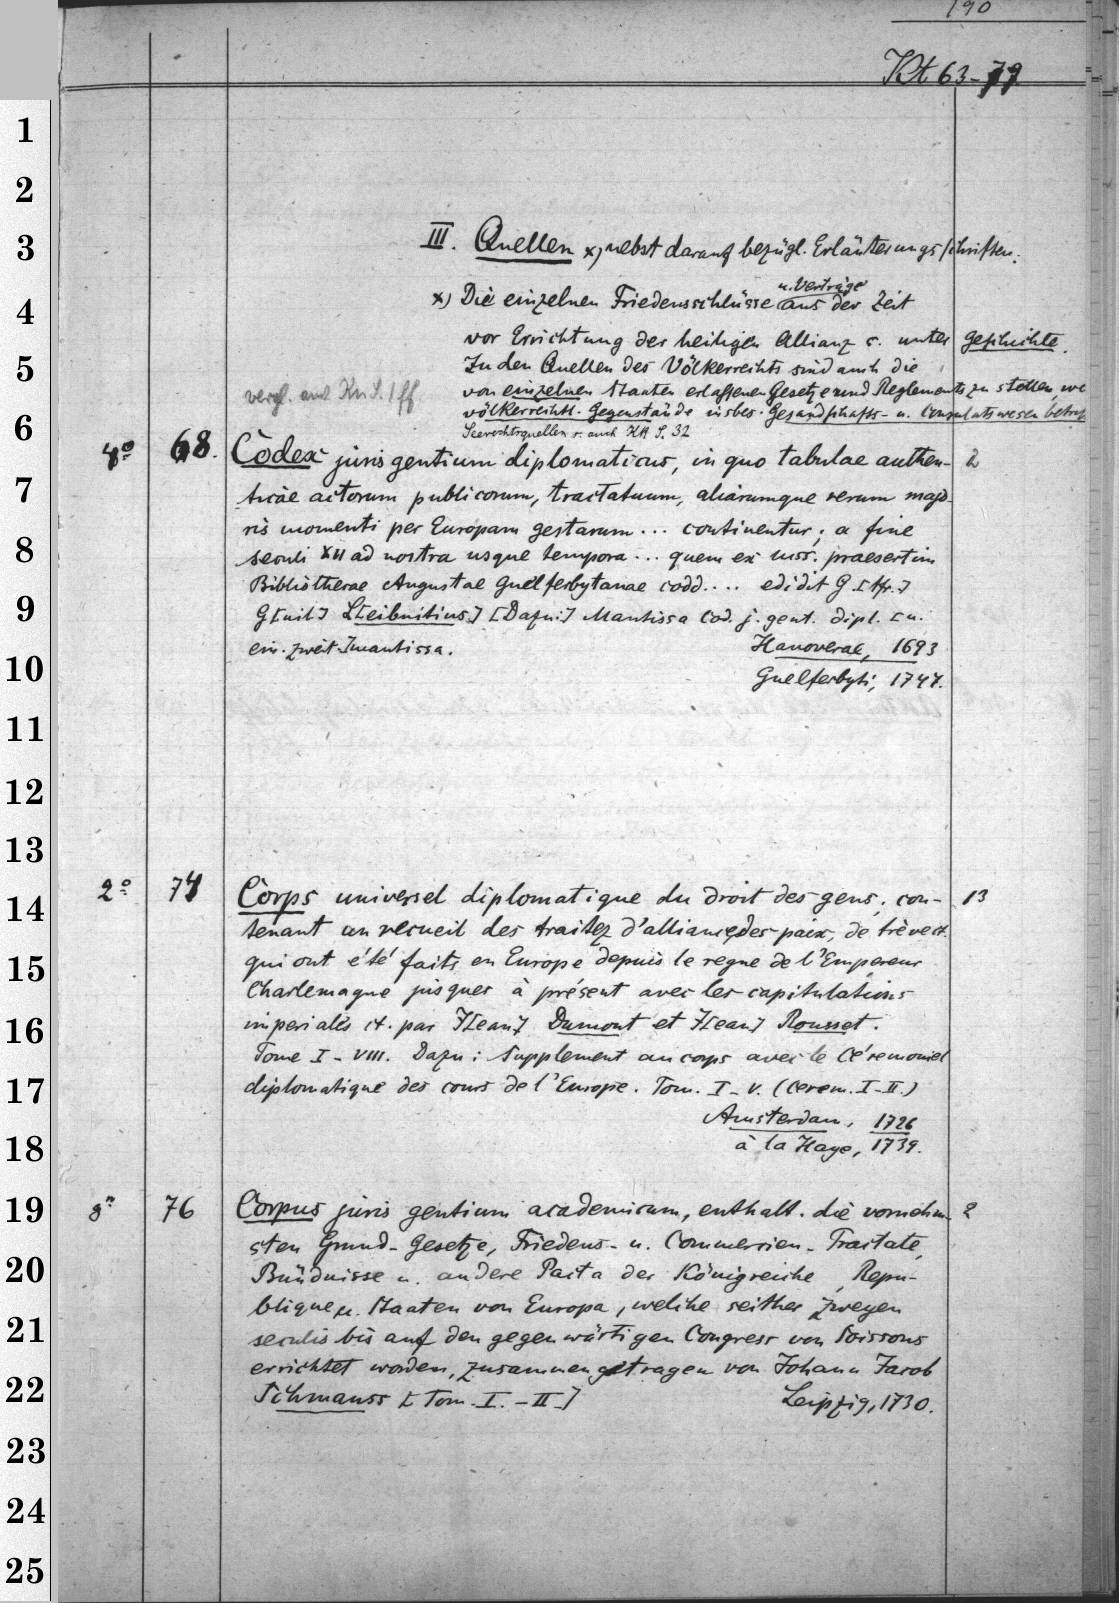 190
Kt 63-79
III. Quellen x) nebst darauf bezügl. Erläuterungsschriften.
x) Die einzelnen Friedensschlüsse u. Verträge aus der Zeit
vor Errichtung der heiligen Allianz s. unter Geschichte.
Zu den Quellen des Völkerrechts sind auch die
von einzelnen Staaten erlassenen Gesetze und Reglements zu stellen, we
völkerrechtl. Gegenstände insbes. Gesandtschafts- u. Consulatswesen betref
vergl. auch Kn S. 1 ff
Seerechtsquellen s. auch KH S. 32
4° 68. Codex juris gentium diplomaticus, in quo tabulae authen- 2
ticae actorum publicorum, tractatuum, aliarumque rerum majo-
ris momenti per Europam gestarum ... continentur; a fine
seculi XII ad nostra usque tempora ... quem ex mss. praesertim
Bibliothecae Augustae Guelferbytanae codd.... edidit G.[tfr.]
G[uil] L[eibnitius.] [Dazu:] Mantissa Cod. j. gent. dipl. [u.
ein. zweit. Imantissa.
Hanoverae, 1693
Guelferbyti, 1747.
2° 74 Corps universel diplomatique du droit des gens; con- 13
tenant un recueil des traitez d'alliance, des paix, de trève ct.
qui ont été faits en Europe depuis le regne de l'Empereur
Charlemagne jusques à présent avec les capitulations
imperiales ct. par J[ean] Dumont et J[ean] Rousset.
Tome I-VIII. Dazu: Supplement au corps avec le Céremoniel
diplomatique des cours de l'Europe. Tom. I-V. (Cerem. I-II.)
Amsterdam, 1726
à la Haye, 1739.
8° 76 Corpus juris gentium academicum, enthalt. die vornehm- 2
sten Grund-Gesetze, Friedens- u. Commercien-Tractate,
Bündnisse u. andere Pacta der Königreiche, Repu-
blique, u. Staaten von Europa, welche seither zweyen
seculis bis auf den gegenwärtigen Congress von Soissons
errichtet worden, zusammengetragen von Johann Jacob
Schmauss [Tom. I.-II.]
Leipzig, 1730.
1
2
3
4
5
6
7
8
9
10
11
12
13
14
15
16
17
18
19
20
21
22
23
24
25